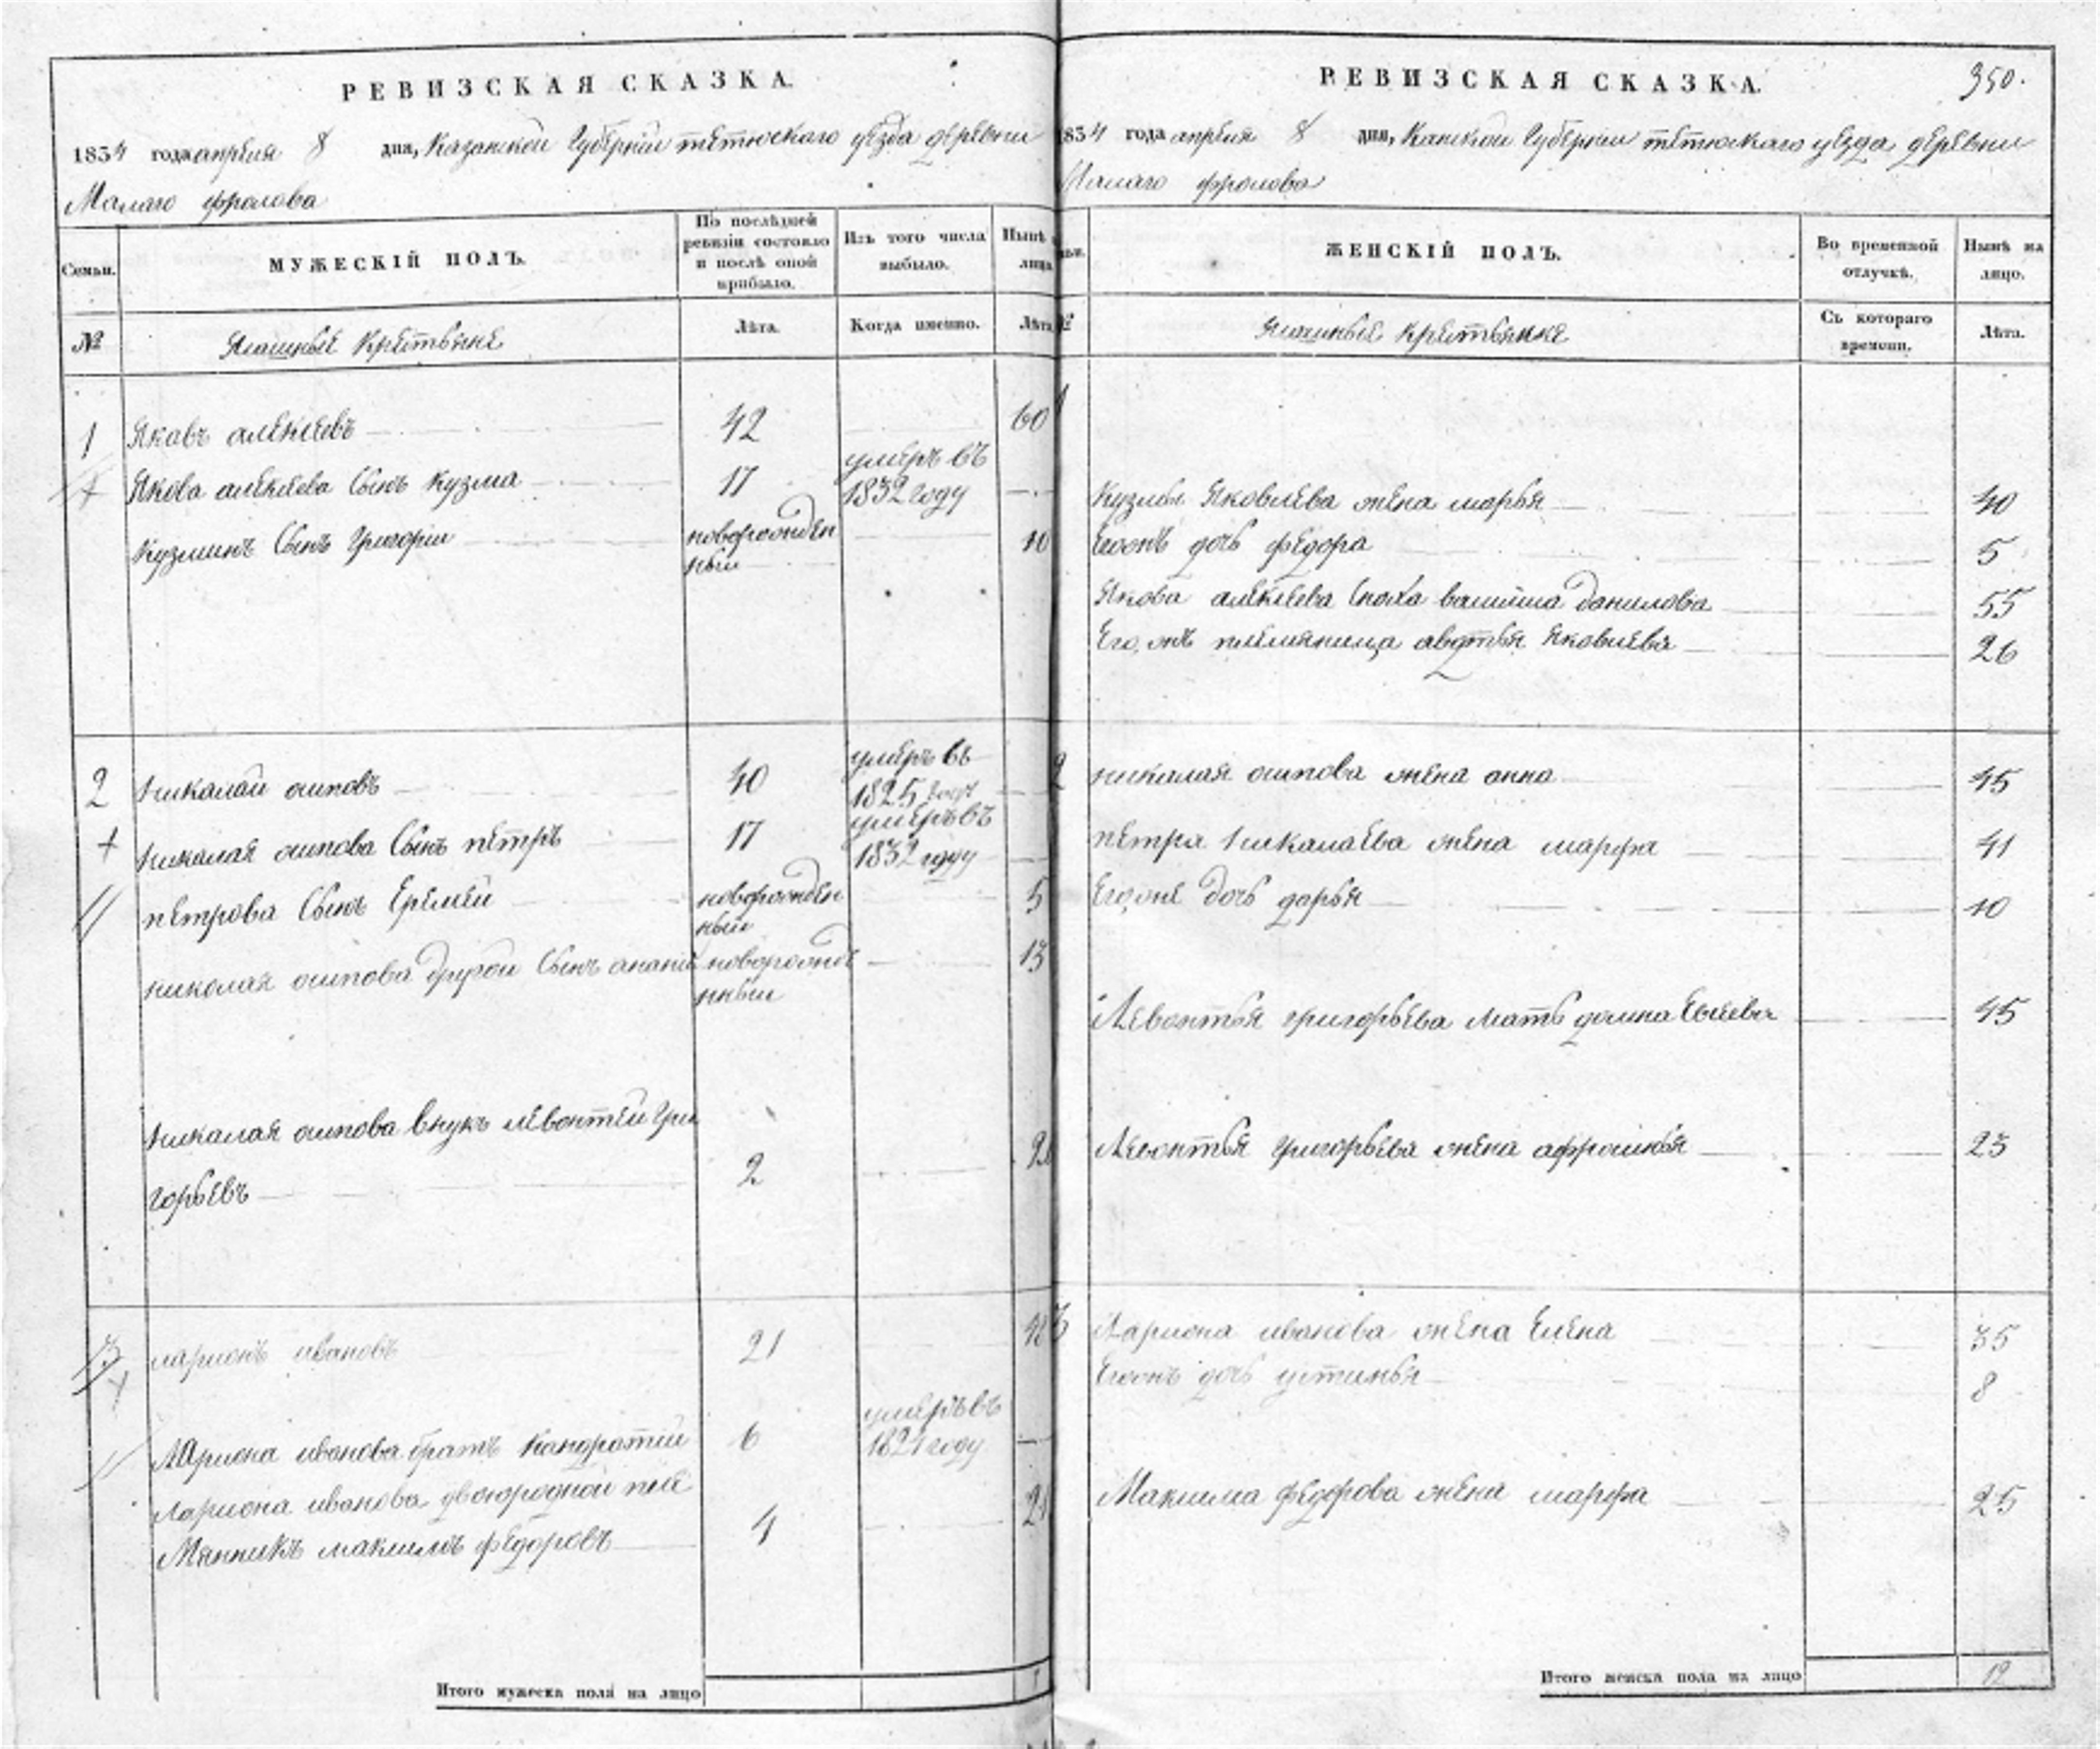 РЕВИЗСКАЯ СКАЗКА.
1834 года апреля 8 дня, Казанской Губернии тетюскаго уезда деревни
Малаго фролова
Семьи.
МУЖЕСКІЙ ПОЛЪ.
По послѣдней
ревизіи состояло
и послѣ оной
прибыло.
Изъ того числа
выбыло.
Нынѣ
лицо
№
Ясашные Крестьяне
Лѣта.
Когда именно.
Лѣта
1 Яковъ алексеевъ 42 60
Якова алексеева Сынъ кузма 17 умеръ въ
1832 году
Кузминъ Сынъ Григории новорожден
ный 10
2 николай осиповъ 40 умеръ въ
1825 году
николая осипова Сынъ петръ 17 умеръ въ
1832 году
петрова Сынъ Еремей новорожден
ный 5
николая осипова другой Сынъ анани новорожде
нный 13
николая осипова внукъ левонтей Гри
горьевъ 2
3 ларионъ ивановъ 21
Лариона иванова братъ кандратий 6 умеръ въ
1821 году
лариона иванова двоюродной пле
мянникъ максимъ федоровъ 4
Итого мужеска пола на лицо
РЕВИЗСКАЯ СКАЗКА.
350.
1834 года апреля 8 дня, Канской Губернии тетюскаго уезда деревни
Малаго фролова
ЖЕНСКІЙ ПОЛЪ.
Во временной
отлучкѣ.
Нынѣ на
лицо.
№
Ясашные крестьянке
Съ котораго
времени.
Лѣта.
1
Кузмы Яковлева жена марья 40
Егожъ дочь федора 5
Якова алексеева Сноха василиса данилова 55
Его жъ племяница авдотья Яковлева 26
2 николая осипова жена анна 45
петра николаева жена марфа 41
Егоже дочь дарья 10
Левонтья григорьева мать домна Евсеева 45
Левонтья Григорьева жена афросинья 23
3 Лариона иванова жена Елена 35
Егожъ дочь устинья 8
Максима федорова жена марфа 25
Итого женска пола на лицо 12